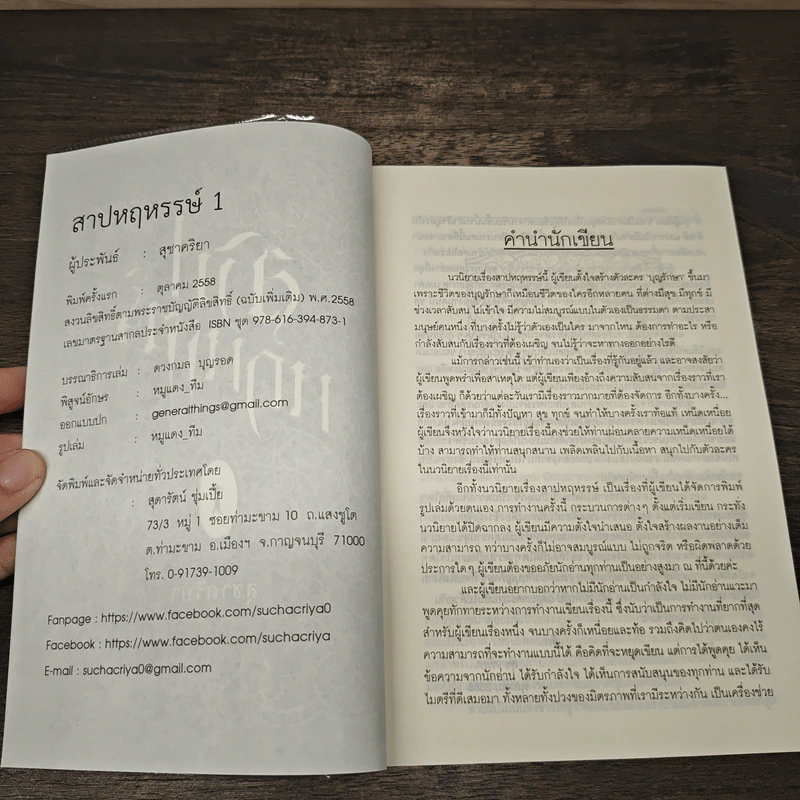 สาปหฤหรรษ์ 1
ผู้ประพันธ์ : สุชาคริยา
พิมพ์ครั้งแรก : ตุลาคม 2558
สงวนลิขสิทธิ์ตามพระราชบัญญัติลิขสิทธิ์ (ฉบับเพิ่มเติม) พ.ศ.2558
เลขมาตรฐานสากลประจำหนังสือ ISBN ชุด 978-616-394-873-1
บรรณาธิการเล่ม : ดวงกมล บุญรอด
พิสูจน์อักษร : หมูแดง_ทีม
ออกแบบปก : generalthings@gmail.com
รูปเล่ม : หมูแดง_ทีม
จัดพิมพ์และจัดจำหน่ายทั่วประเทศโดย
: สุดารัตน์ ชุ่มเปี้ย
73/3 หมู่ 1 ซอยท่ามะขาม 10 ถ.แสงชูโต
ต.ท่ามะขาม อ.เมืองฯ จ.กาญจนบุรี 71000
โทร. 0-91739-1009
Fanpage : https://www.facebook.com/suchacriya0
Facebook : https://www.facebook.com/suchacriya
E-mail : suchacriya0@gmail.com
คำนำนักเขียน
นวนิยายเรื่องสาปหฤหรรษ์นี้ ผู้เขียนตั้งใจสร้างตัวละคร 'บุญรักษา' ขึ้นมา
เพราะชีวิตของบุญรักษาก็เหมือนชีวิตของใครอีกหลายคน ที่ต่างมีสุข มีทุกข์ มี
ช่วงเวลาสับสน ไม่เข้าใจ มีความไม่สมบูรณ์แบบในตัวเองเป็นธรรมดา ตามประสา
มนุษย์คนหนึ่ง ที่บางครั้งไม่รู้ว่าตัวเองเป็นใคร มาจากไหน ต้องการทำอะไร หรือ
กำลังสับสนกับเรื่องราวที่ต้องเผชิญ จนไม่รู้ว่าจะหาทางออกอย่างไรดี
แม้การกล่าวเช่นนี้ เข้าทำนองว่าเป็นเรื่องที่รู้กันอยู่แล้ว และอาจสงสัยว่า
ผู้เขียนพูดพร่ำเพื่อสาเหตุใด แต่ผู้เขียนเพียงอ้างถึงความสับสนจากเรื่องราวที่เรา
ต้องเผชิญ ก็ด้วยว่าแต่ละวันเรามีเรื่องราวมากมายที่ต้องจัดการ อีกทั้งบางครั้ง...
เรื่องราวที่เข้ามาก็มีทั้งปัญหา สุข ทุกข์ จนทำให้บางครั้งเราท้อแท้ เหน็ดเหนื่อย
ผู้เขียนจึงหวังใจว่านวนิยายเรื่องนี้คงช่วยให้ท่านผ่อนคลายความเหนื่อยได้
บ้าง สามารถทำให้ท่านสนุกสนาน เพลิดเพลินไปกับเนื้อหา สนุกไปกับตัวละคร
ในนวนิยายเรื่องนี้เท่านั้น
อีกทั้งนวนิยายเรื่องสาปหฤหรรษ์ เป็นเรื่องที่ผู้เขียนได้จัดการพิมพ์
รูปเล่มด้วยตนเอง การทำงานครั้งนี้ กระบวนการต่างๆ ตั้งแต่เริ่มเขียน กระทั่ง
นวนิยายได้ปิดฉากลง ผู้เขียนมีความตั้งใจนำเสนอ ตั้งใจสร้างผลงานอย่างเต็ม
ความสามารถ ทว่าบางครั้งก็ไม่อาจสมบูรณ์แบบ ไม่ถูกจริต หรือผิดพลาดด้วย
ประการใดๆ ผู้เขียนต้องขออภัยนักอ่านทุกท่านเป็นอย่างสูงมา ณ ที่นี้ด้วยค่ะ
และผู้เขียนอยากบอกว่าหากไม่มีนักอ่านเป็นกำลังใจ ไม่มีนักอ่านแวะมา
พูดคุยทักทายระหว่างการทำงานเขียนเรื่องนี้ ซึ่งนับว่าเป็นการทำงานที่ยากที่สุด
สำหรับผู้เขียนเรื่องหนึ่ง จนบางครั้งก็เหนื่อยและท้อ รวมถึงคิดไปว่าตนเองคงไร้
ความสามารถที่จะทำงานแบบนี้ได้ คือคิดที่จะหยุดเขียน แต่การได้พูดคุย ได้เห็น
ข้อความจากนักอ่าน ได้รับกำลังใจ ได้เห็นการสนับสนุนของทุกท่าน และได้รับ
ไมตรีที่ดีเสมอมา ทั้งหลายทั้งปวงของมิตรภาพที่เรามีระหว่างกัน เป็นเครื่องช่วย